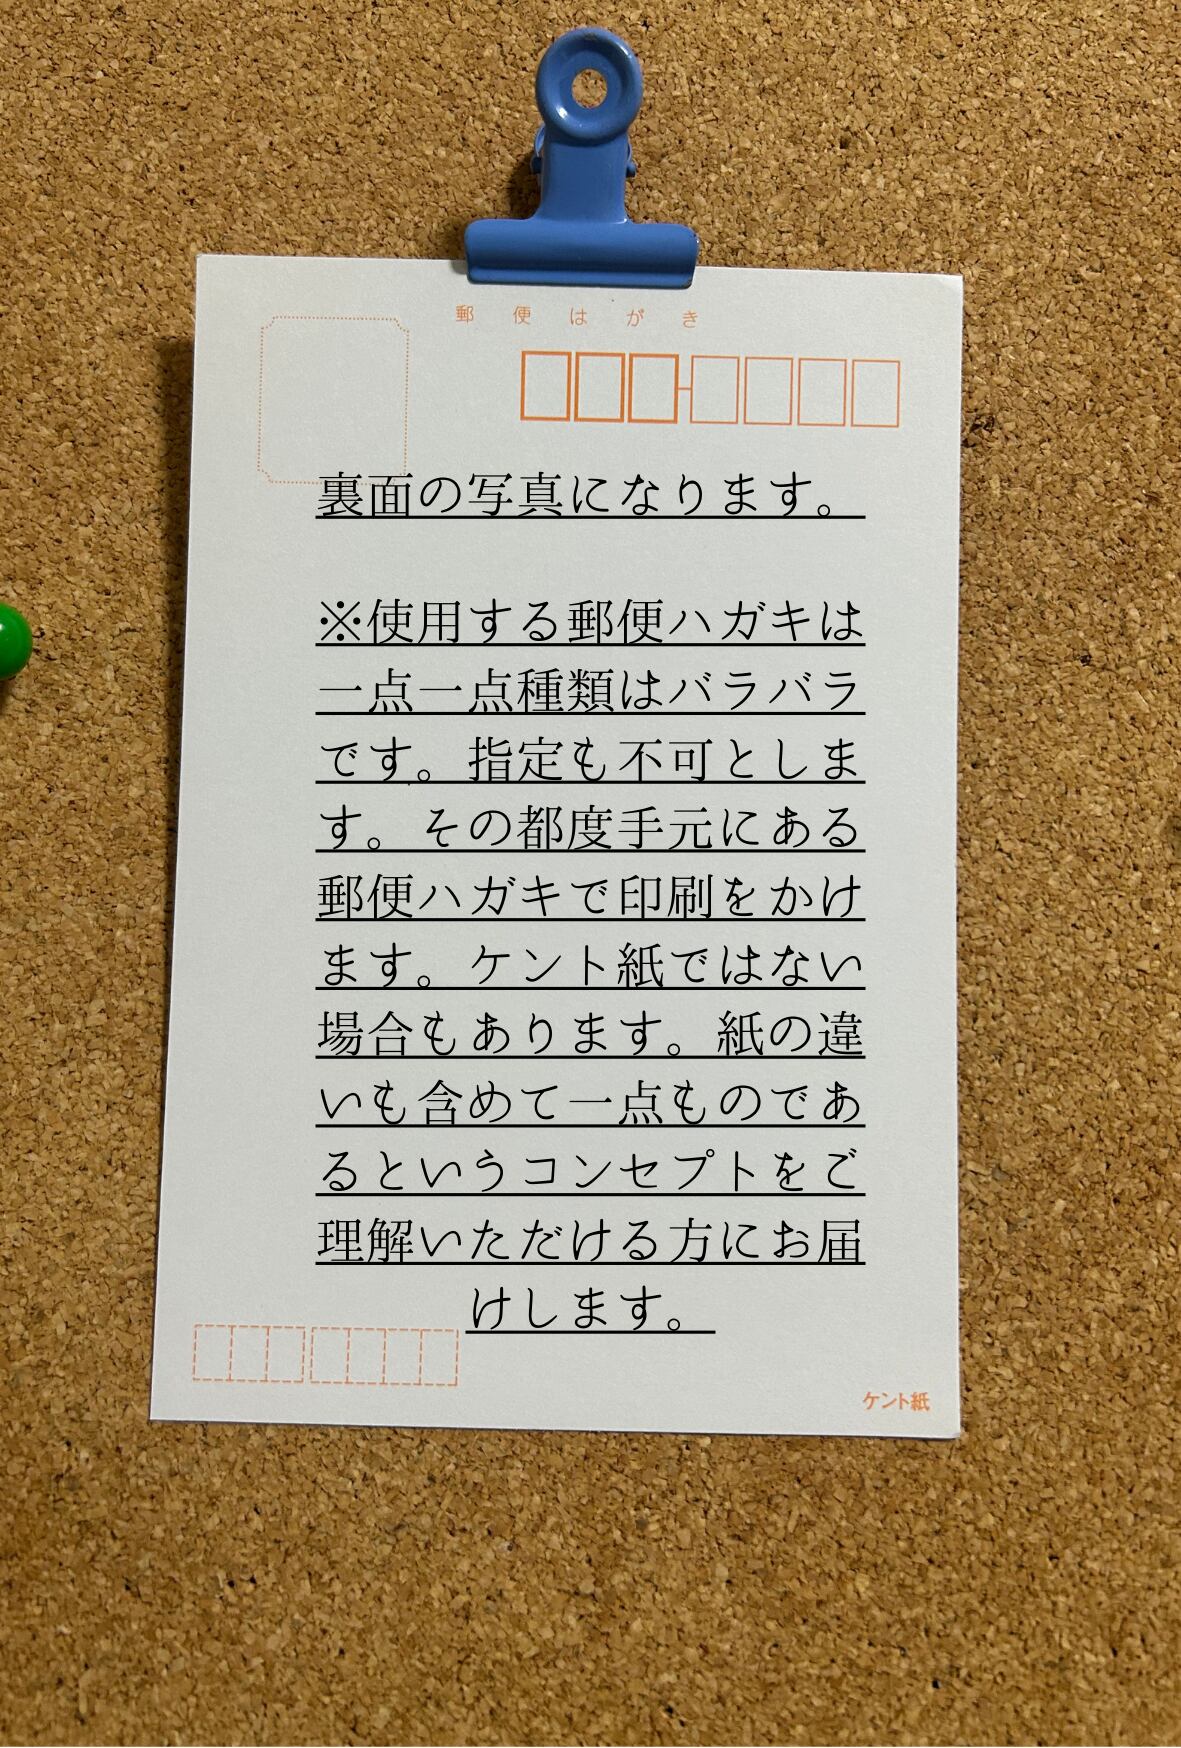 郵便はがき
裏面の写真になります。
※使用する郵便ハガキは
一点一点種類はバラバラ
です。指定も不可としま
す。その都度手元にある
郵便ハガキで印刷をかけ
ます。ケント紙ではない
場合もあります。紙の違
いも含めて一点ものであ
るというコンセプトをご
理解いただける方にお届
けします。
ケント紙